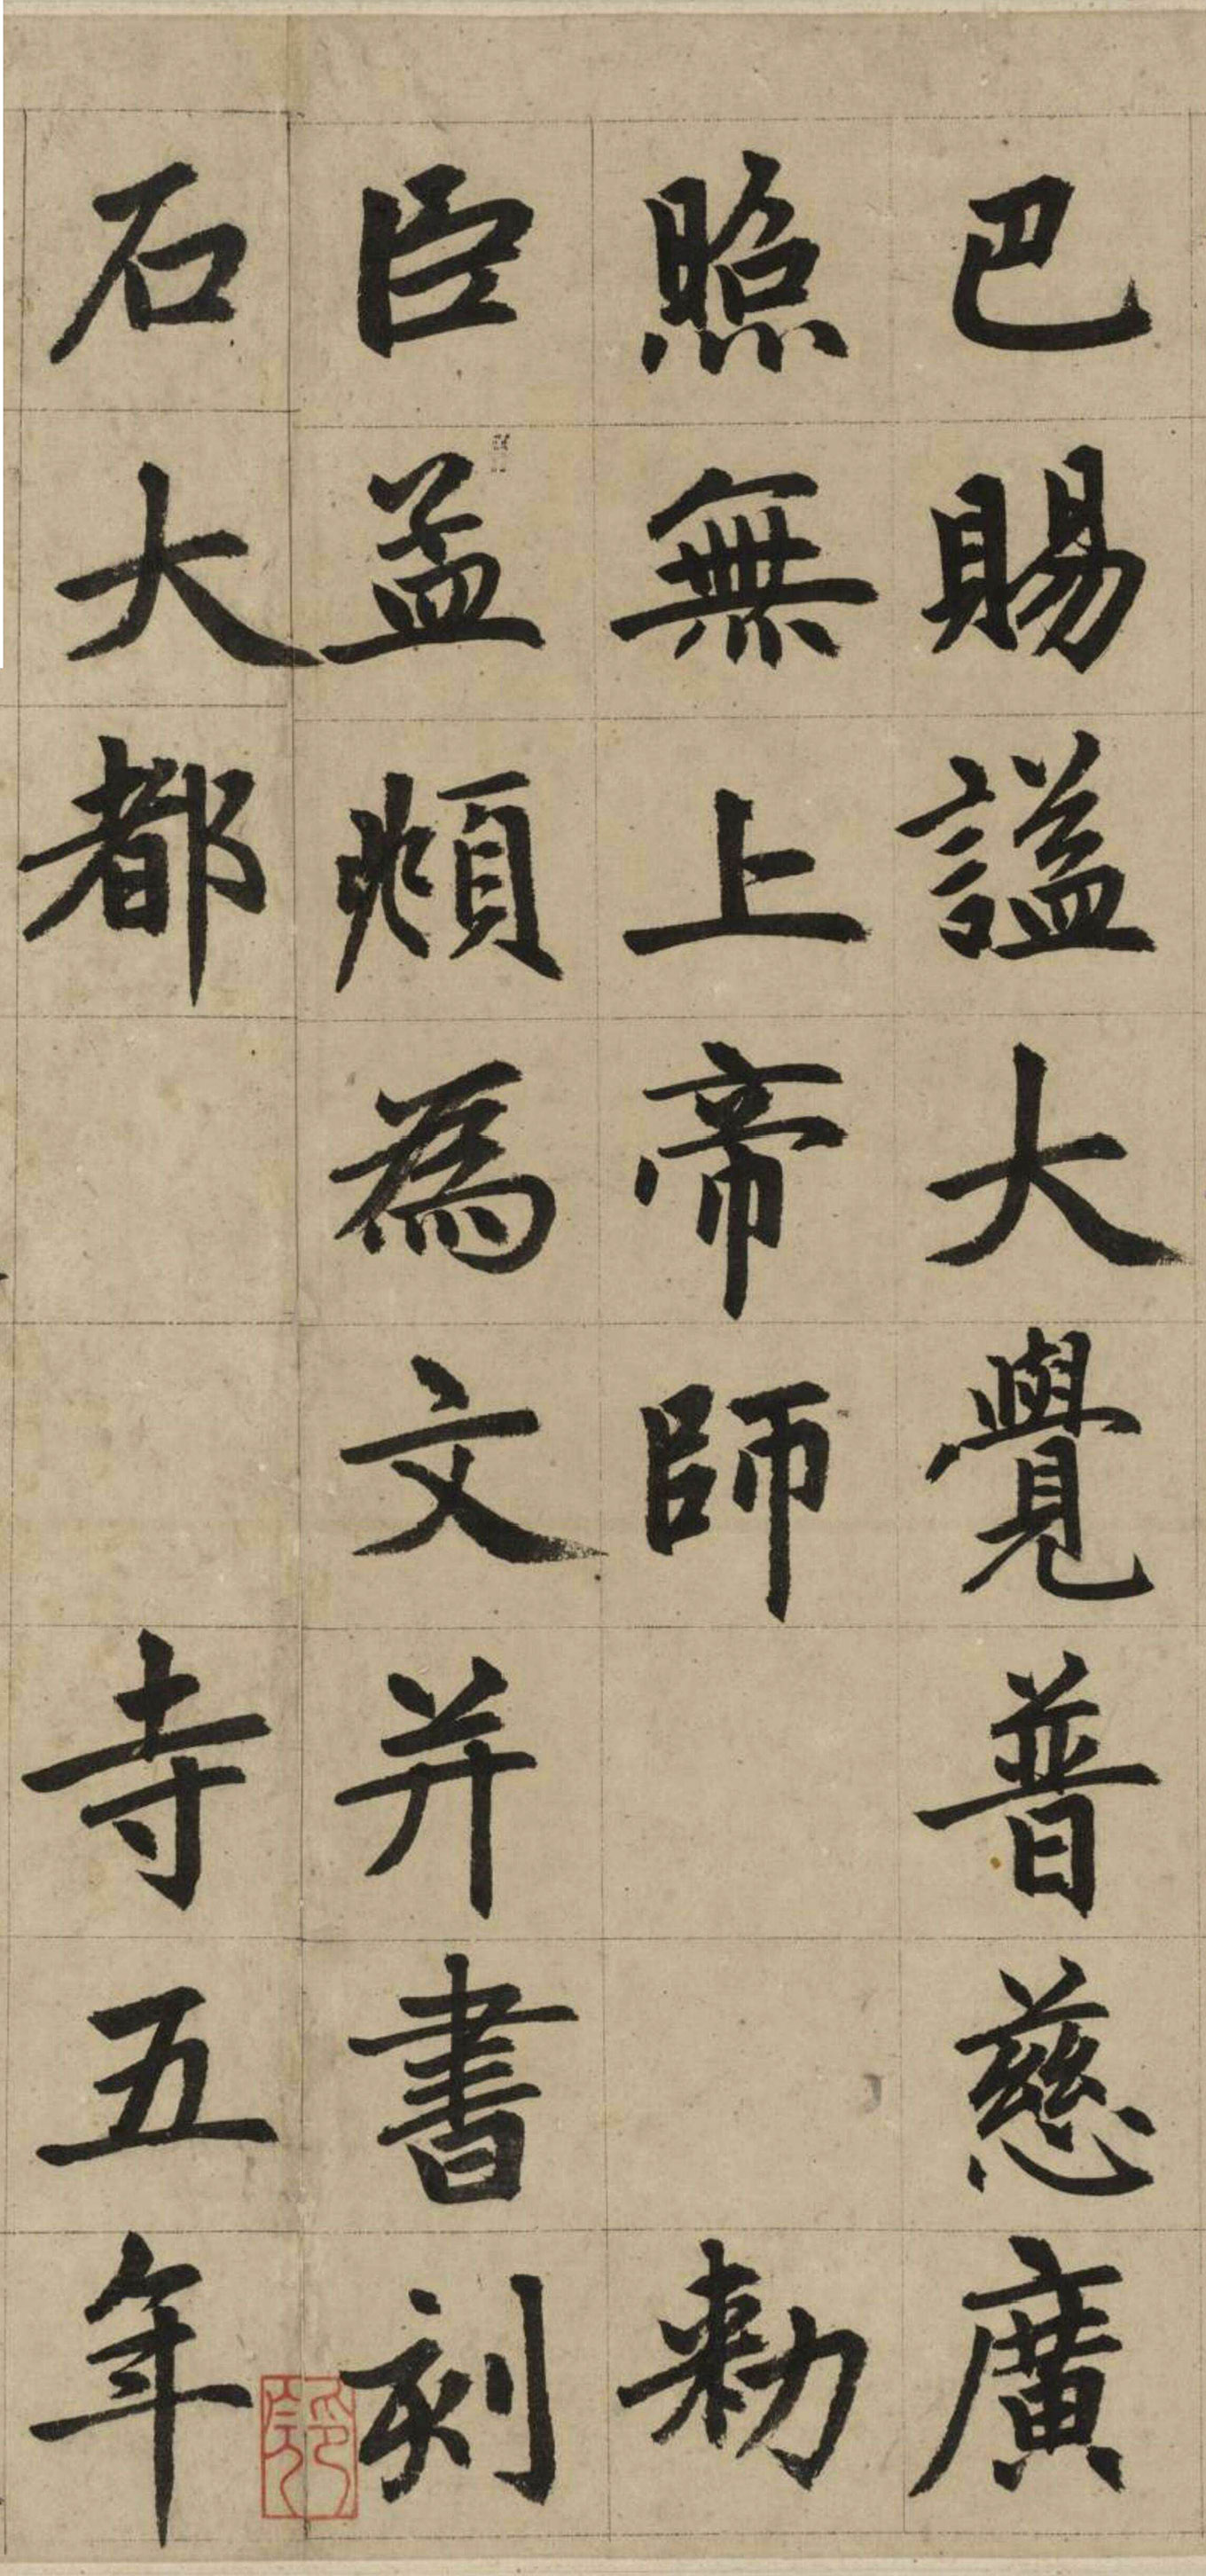 巴賜謚大覺普慈廣
照無上帝師　　勅
臣孟頫為文并書刻
石大都　　寺五年